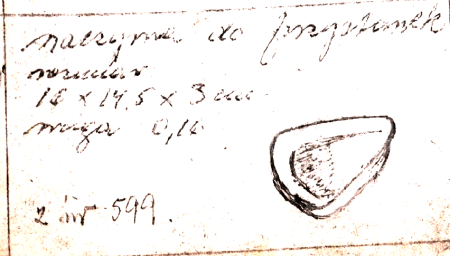 naczynie do przystawek
rozmiar
16 x 14,5 x 3 cm
waga 0,16
z inr 599.